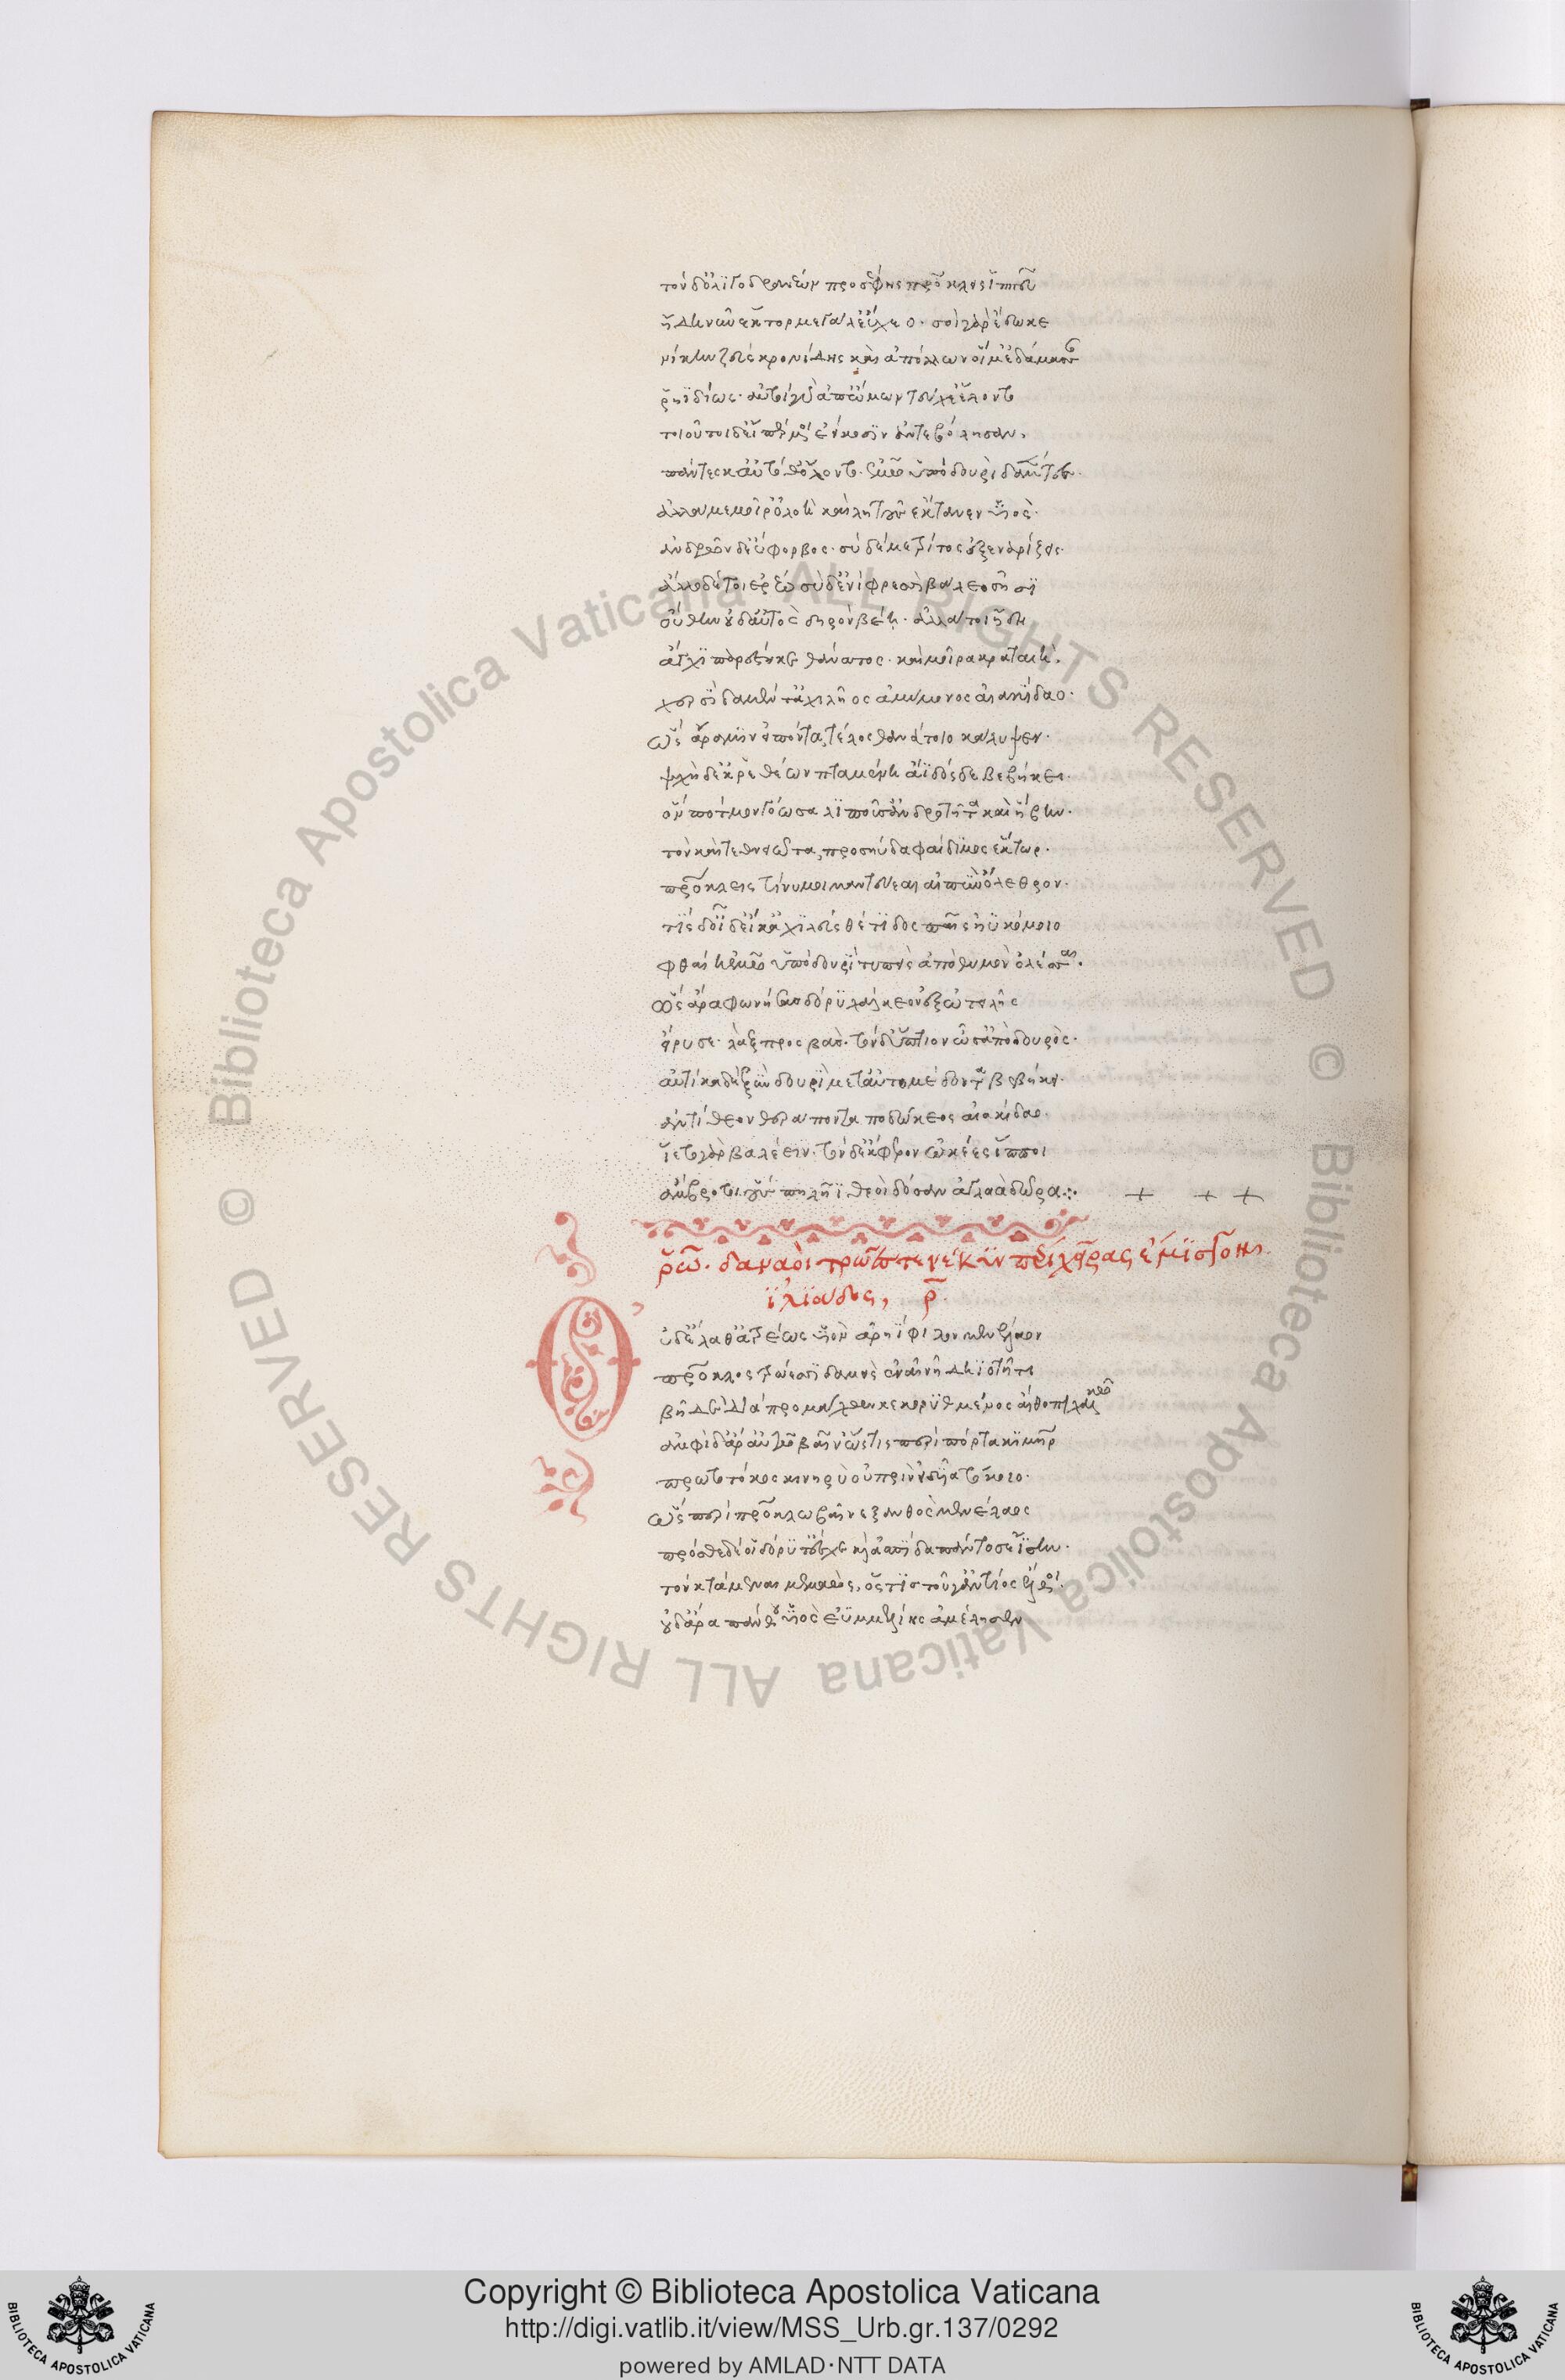 τὸν δ' ὀλιγοδρανέων προσέφης πρόκλεις ἱππεῦ
ἤδη νῦν ἕκτορ μεγάλ' εὔχεο· σοὶ γὰρ ἔδωκε
νίκην ζεὺς κρονίδης καὶ ἀπόλλων οἵ με δάμασαν
ῥηϊδίως· αὐτοὶ γὰρ ἀπ' ὤμων τεύχε' ἕλοντο
τοιοῦτοι δ' εἴπέρ μοι ἐείκοσιν ἀντεβόλησαν,
πάντες κ' αὐτόθ' ὄλοντο· ἐμῷ ὑπὸ δουρὶ δαμέντες·
ἀλλά με μοῖρ' ὀλοὴ καὶ λητοῦς ἔκτανεν υἱός·
ἀνδρῶν δ' εὔφορβος· σὺ δέ με τρίτος ἐξεναρίζεις·
ἄλλο δέ τοι ἐρέω σὺ δ' ἐνὶ φρεσὶ βάλλεο σῇσι
οὔ θην οὐδ' αὐτὸς δηρὸν βέῃ· ἀλλά τοι ἤδη
ἄγχι παρέστηκε θάνατος· καὶ μοῖρα κραταιή,
χερσὶ δαμέντ' ἀχιλῆος ἀμύμονος αἰακίδαο·
ὣς ἄρα μιν εἰπόντα, τέλος θανάτοιο κάλυψεν·
ψυχὴ δ' ἐκ ῥεθέων πταμένη ἄϊδόσδε βεβήκει·
ὃν πότμον γοόωσα λιποῦσ' ἀνδροτῆτα καὶ ἥβην·
τὸν καὶ τεθνειῶτα, προσηύδα φαίδιμος ἕκτωρ·
πρόκλεις τί νύ μοι μαντεύεαι αἰπὺν ὄλεθρον·
τίς δ' οἶδ' εἴ κ' ἀχιλεὺς θέτιδος παῖς ἠϋκόμοιο
φθαίη ἐμῷ ὑπὸ δουρὶ τυπεὶς ἀπὸ θυμὸν ὀλέσσαι·
ὣς ἄρα φωνήσας δόρυ χάλκεον ἐξ ὠτειλῆς
εἴρυσε· λὰξ προσβάς· τὸν δ' ὕπτιον ὦσ' ἀπὸ δουρός·
αὐτίκα δὲ ξὺν δουρὶ μετ' αὐτομέδοντα βεβήκει·
ἀντίθεον θεράποντα ποδώκεος αἰακίδαο·
ἵετο γὰρ βαλέειν· τὸν δ' ἔκφερον ὠκέες ἵπποι
ἄμβροτοι οὓς πηλῆϊ θεοὶ δόσαν ἀγλαὰ δῶρα:·
ῥῶ· δαναοὶ τρῶές τε νέκυν πέρι χεῖρας ἔμισγον·
ἰλιάδος, ρ
Οὐδ' ἔλαθ' ἀτρέως υἱὸν ἀρηΐφιλον μενέλαον
πρόκλος τρώεσσι δαμεὶς ἐν αἰνῇ δηϊοτῆτι
βῆ δὲ διὰ προμάχων κεκορυθμένος αἴθοπι χαλκῷ
ἀμφὶ δ' ἄρ' αὐτῷ βαῖν' ὥς τις περὶ πόρτακι μήτηρ
πρωτοτόκος κινυρὴ οὐ πρὶν εἰδυῖα τόκοιο·
ὣς περὶ πρόκλῳ βαῖνε ξανθὸς μενέλαος
πρόσθε δέ οἱ δόρυ τ' ἔσχε καὶ ἀσπίδα πάντοσ' ἐΐσην·
τὸν κτάμεναι μεμαώς, ὅς τις τοῦ γ' ἀντίος ἔλθοι·
οὐδ' ἄρα πάνθου υἱὸς ἐϋμμελίης ἀμέλησεν
Copyright © Biblioteca Apostolica Vaticana
http://digi.vatlib.it/view/MSS_Urb.gr.137/0292
powered by AMLAD·NTT DATA